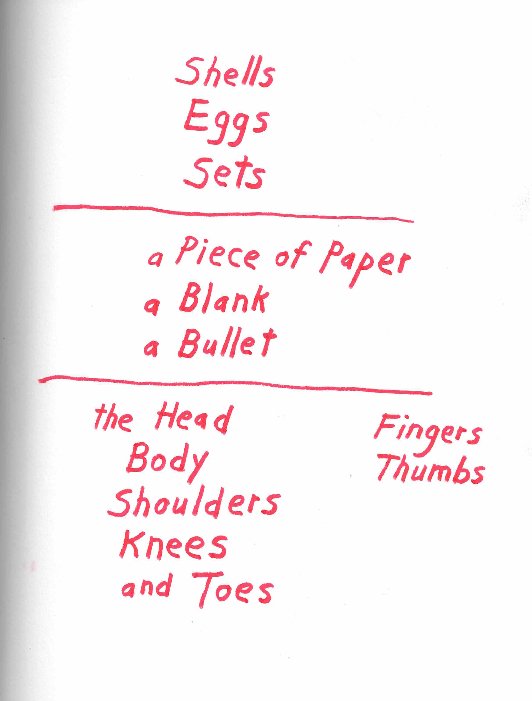 Shells
Eggs
Sets
a Piece of Paper
a Blank
a Bullet
the Head
Body
Shoulders
Knees
and Toes
Fingers
Thumbs